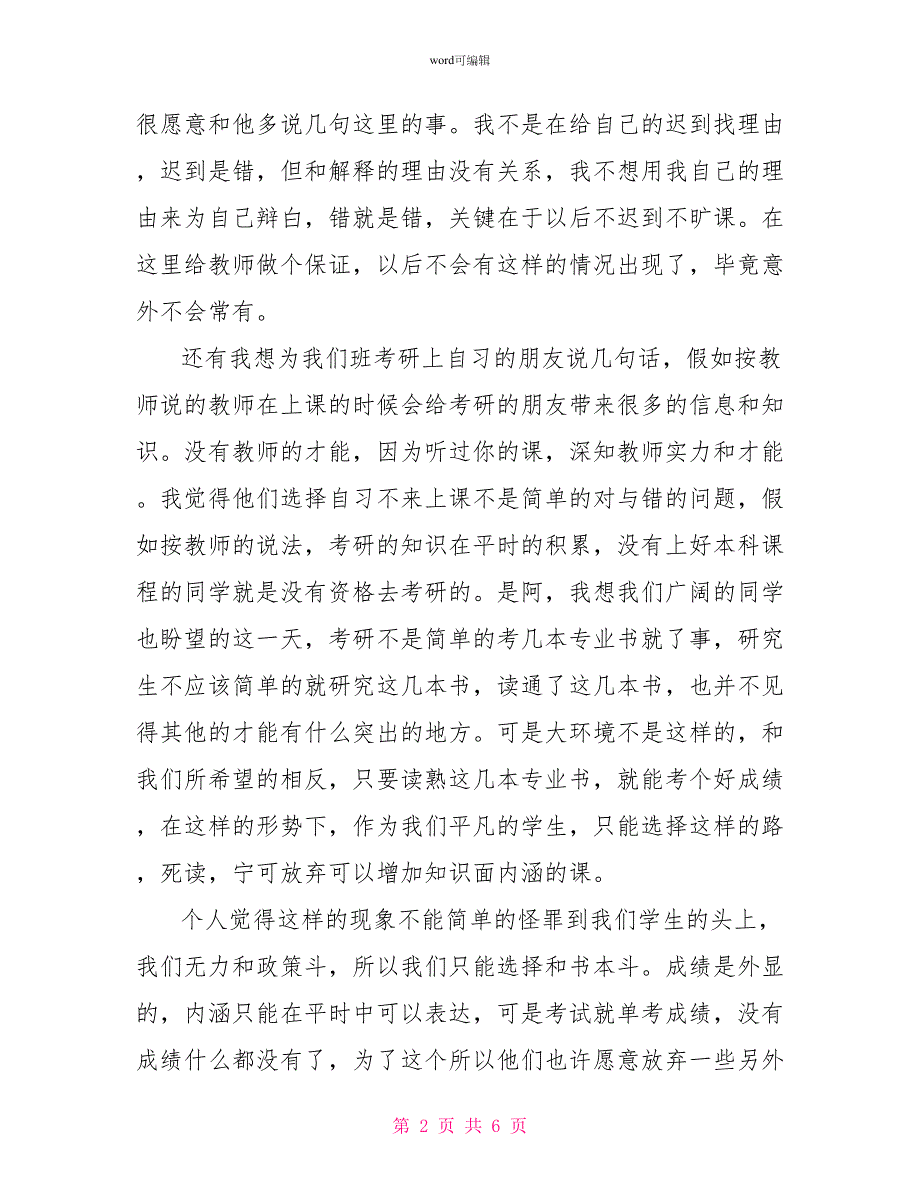 word可编辑
很愿意和他多说几句这里的事。我不是在给自己的迟到找理由
，迟到是错，但和解释的理由没有关系，我不想用我自己的理
由来为自己辩白，错就是错，关键在于以后不迟到不旷课。在
这里给教师做个保证，以后不会有这样的情况出现了，毕竟意
外不会常有。
还有我想为我们班考研上自习的朋友说几句话，假如按教
师说的教师在上课的时候会给考研的朋友带来很多的信息和知
识。没有教师的才能，因为听过你的课，深知教师实力和才能
。我觉得他们选择自习不来上课不是简单的对与错的问题，假
如按教师的说法，考研的知识在平时的积累，没有上好本科课
程的同学就是没有资格去考研的。是阿，我想我们广阔的同学
也盼望的这一天，考研不是简单的考几本专业书就了事，研究
生不应该简单的就研究这几本书，读通了这几本书，也并不见
得其他的才能有什么突出的地方。可是大环境不是这样的，和
我们所希望的相反，只要读熟这几本专业书，就能考个好成绩
，在这样的形势下，作为我们平凡的学生，只能选择这样的路
，死读，宁可放弃可以增加知识面内涵的课。
个人觉得这样的现象不能简单的怪罪到我们学生的头上，
我们无力和政策斗，所以我们只能选择和书本斗。成绩是外显
的，内涵只能在平时中可以表达，可是考试就单考成绩，没有
成绩什么都没有了，为了这个所以他们也许愿意放弃一些另外
第 2 页 共 6 页